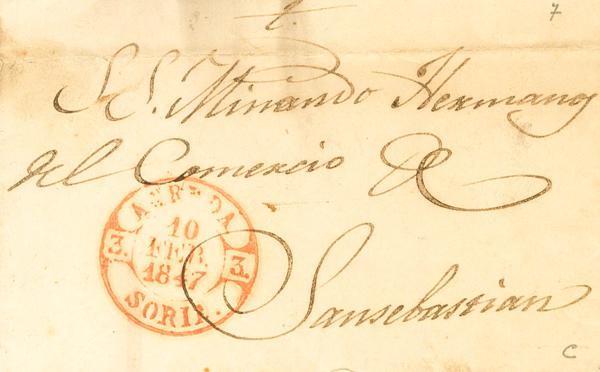 t.
7
S.S. Minando Hermanos
del Comercio &
AGREDA
10
FEB.
1847
3. 3.
SORIA.
Sansebastian
C